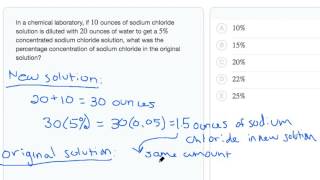 In a chemical laboratory, if 10 ounces of sodium chloride
solution is diluted with 20 ounces of water to get a 5%
concentrated sodium chloride solution, what was the
percentage concentration of sodium chloride in the original
solution?
A 10%
B 15%
C 20%
D 22%
E 25%
New solution:
20+10 = 30 ounces
30(5%) = 30(0.05) = 1.5 ounces of sodium
chloride in new solution
original solution:
same amount